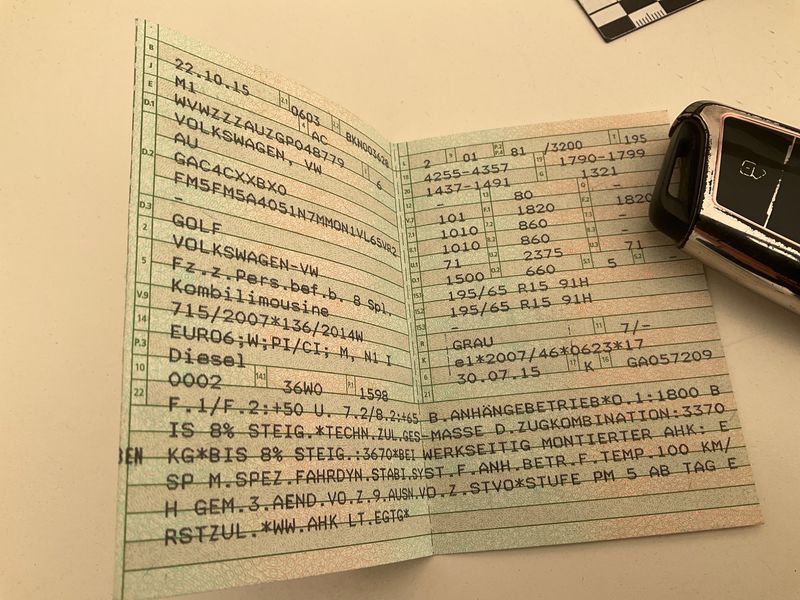 B 22.10.15 2.1 0603 2.2 BKN003628
J M1 4 AC
E WVWZZZAUZGP048779 3 6
D.1 VOLKSWAGEN, VW
AU
D.2 GAC4CXXBX0
FM5FM5A4051N7MMON1VL65VR2
-
D.3 GOLF
2 VOLKSWAGEN-VW
5 Fz.z.Pers.bef.b. 8 Spl.
Kombilimousine
V.9 715/2007*136/2014W
14 EURO6;W;PI/CI; M, N1 I
P.3 Diesel
10 0002 14.1 36W0 P.1 1598
22 F.1/F.2:+50 U. 7.2/8.2:+65
IS 8% STEIG.*TECHN.ZUL.GES-
BEN KG*BIS 8% STEIG.:3670*BEI
SP M.SPEZ.FAHRDYN.STABI.SY
H GEM.3.AEND.VO.Z.9.AUSN.VO.Z.
RSTZUL.*WW.AHK LT.EGTG*
L 2 9 01 81 /3200 T 195
18 4255-4357 19 1790-1799
20 1437-1491 G 1321
12 - 80 -
101 1820 1820
1010 860 -
1010 860 -
71 2375 71
1500 660 5 -
195/65 R15 91H
195/65 R15 91H
-
R GRAU 11 7/-
K e1*2007/46*0623*17
6 30.07.15 17 K 16 GA057209
21
B.ANHÄNGEBETRIEB*O.1:1800 B
MASSE D.ZUGKOMBINATION:3370
WERKSEITIG MONTIERTER AHK: E
ST.F.ANH.BETR.F.TEMP.100 KM/
STVO*STUFE PM 5 AB TAG E